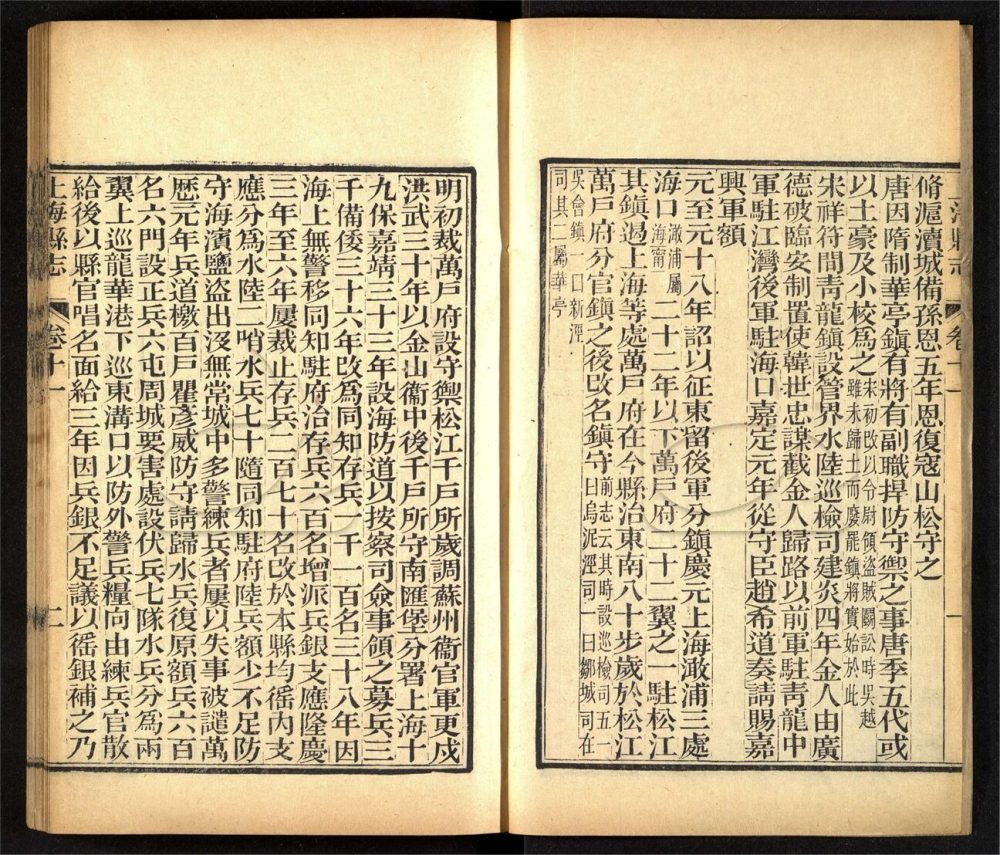 上海縣志 卷十一 一
脩滬瀆城備孫恩五年恩復寇山松守之
唐因隋制華亭鎮有將有副職捍防守禦之事唐季五代或
以土豪及小校爲之宋初改以令尉領盜賊鬬訟時吳越
雖未歸土而廢罷鎮將實始於此
宋祥符間靑龍鎮設管界水陸巡檢司建炎四年金人由廣
德破臨安制置使韓世忠謀截金人歸路以前軍駐靑龍中
軍駐江灣後軍駐海口嘉定元年從守臣趙希道奏請賜嘉
興軍額
元至元十八年詔以征東留後軍分鎮慶元上海澉浦三處
海口澉浦屬
海甯
二十二年以下萬戸府二十二翼之一駐松江
其鎮遏上海等處萬戸府在今縣治東南八十步歲於松江
萬戸府分官鎮之後改名鎮守前志云其時設巡檢司五一
曰烏泥涇司一曰鄒城司在
吳會鎮一曰新涇
司其二屬華亭
明初裁萬戸府設守禦松江千戸所歲調蘇州衞官軍更戍
洪武三十年以金山衞中後千戸所守南匯堡分署上海十
九保嘉靖三十三年設海防道以按察司僉事領之募兵三
千備倭三十六年改爲同知存兵一千一百名三十八年因
海上無警移同知駐府治存兵六百名增派兵銀支應隆慶
三年至六年屢裁止存兵二百七十名改於本縣均徭內支
應分爲水陸二哨水兵七十隨同知駐府陸兵額少不足防
守海濱鹽盜出沒無常城中多警練兵者屢以失事破譴萬
歷元年兵道檄百戸瞿彥威防守請歸水兵復原額兵六百
名六門設正兵六屯周城要害處設伏兵七隊水兵分爲兩
翼上巡龍華港下巡東溝口以防外警兵糧向由練兵官散
給後以縣官唱名面給三年因兵銀不足議以徭銀補之乃
上海縣志 卷十一 二